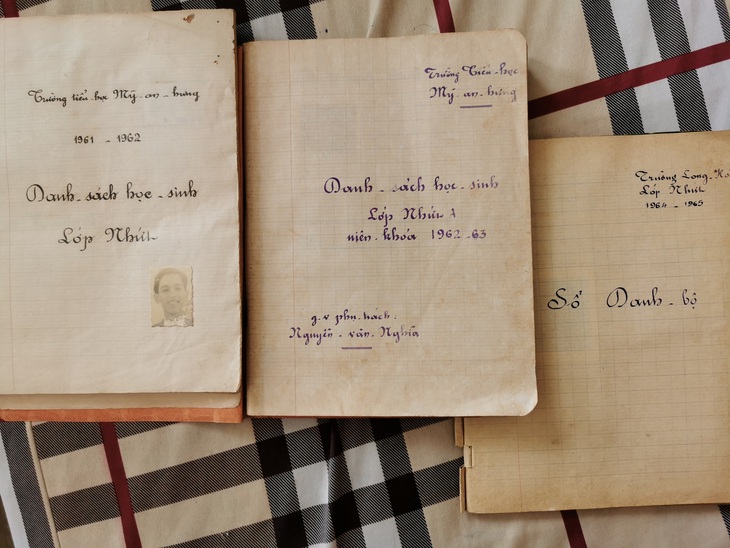 Trường tiểu-học Mỹ-an-hưng
1961 - 1962
Danh-sách học-sinh
Lớp Nhứt
Trường Tiểu-học
Mỹ-an-hưng
Danh-sách học-sinh
Lớp Nhứt A
niên-khóa 1962-63
g.v phụ.trách:
Nguyễn-văn-Nghĩa
Trường Long-
Lớp Nhứt
1964 - 1965
Sổ Danh-bộ